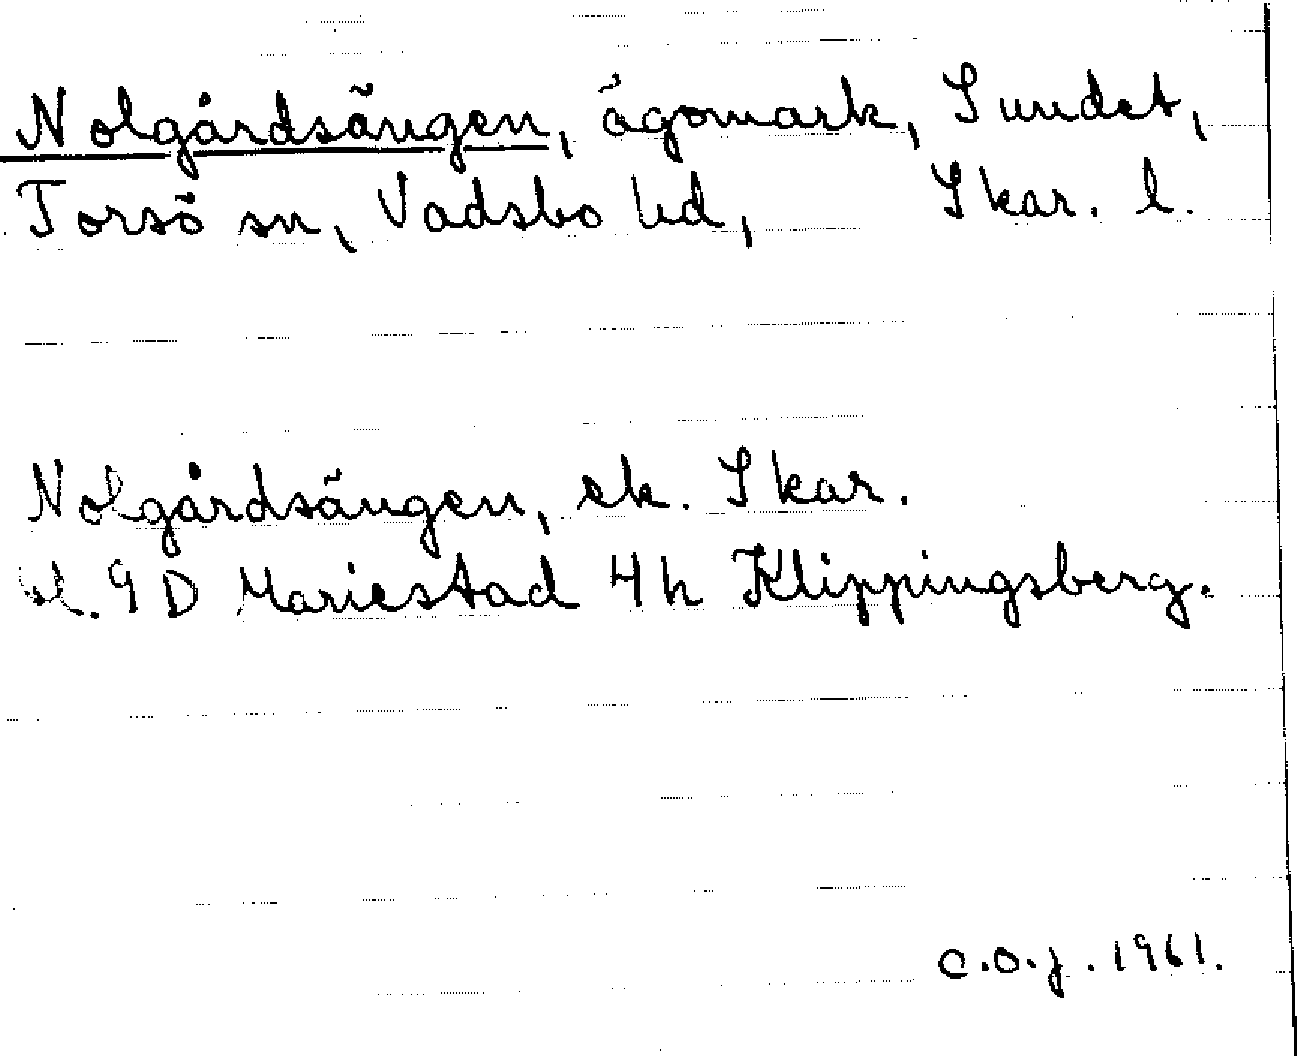 Nolgårdsängen, ägomark, Sundet,
Torsö sn, Vadsbo hd, Skar. l.
Nolgårdsängen, ek. Skar.
bl. 9 D Mariestad 4h Klippingsberg.
C.O.J. 1961.